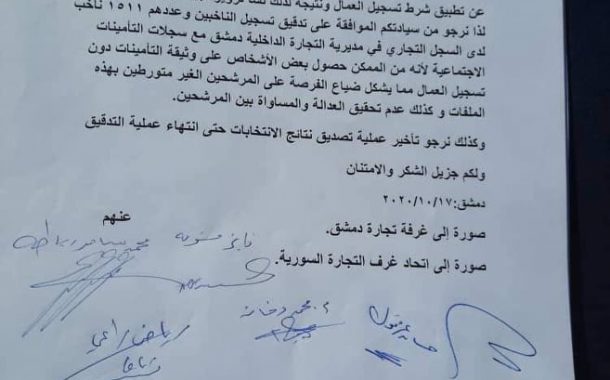 عن تطبيق شرط تسجيل العمال ونتيجة لذلك
لذا نرجو من سيادتكم الموافقة على تدقيق تسجيل الناخبين وعددهم ١٥١١ ناخب
لدى السجل التجاري في مديرية التجارة الداخلية دمشق مع سجلات التأمينات
الاجتماعية لأنه من الممكن حصول بعض الأشخاص على وثيقة التأمينات دون
تسجيل العمال مما يشكل ضياع الفرصة على المرشحين الغير متورطين بهذه
الملفات و كذلك عدم تحقيق العدالة والمساواة بين المرشحين.
وكذلك نرجو تأخير عملية تصديق نتائج الانتخابات حتى انتهاء عملية التدقيق
ولكم جزيل الشكر والامتنان
دمشق:٢٠٢٠/١٠/١٧
عنهم
صورة إلى غرفة تجارة دمشق.
صورة إلى اتحاد غرف التجارة السورية.
محمد سامر
فايز
رياض راعي